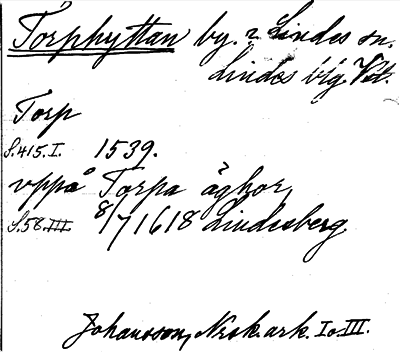 Torphyttan by. i Lindes sn.
Lindes btg. Vst.
Torp
S.415.I. 1539.
uppå Torpa äghor,
S.58.III. 8/7 1618 Lindesberg.
Johansson, Norsk.ark. I o. III.